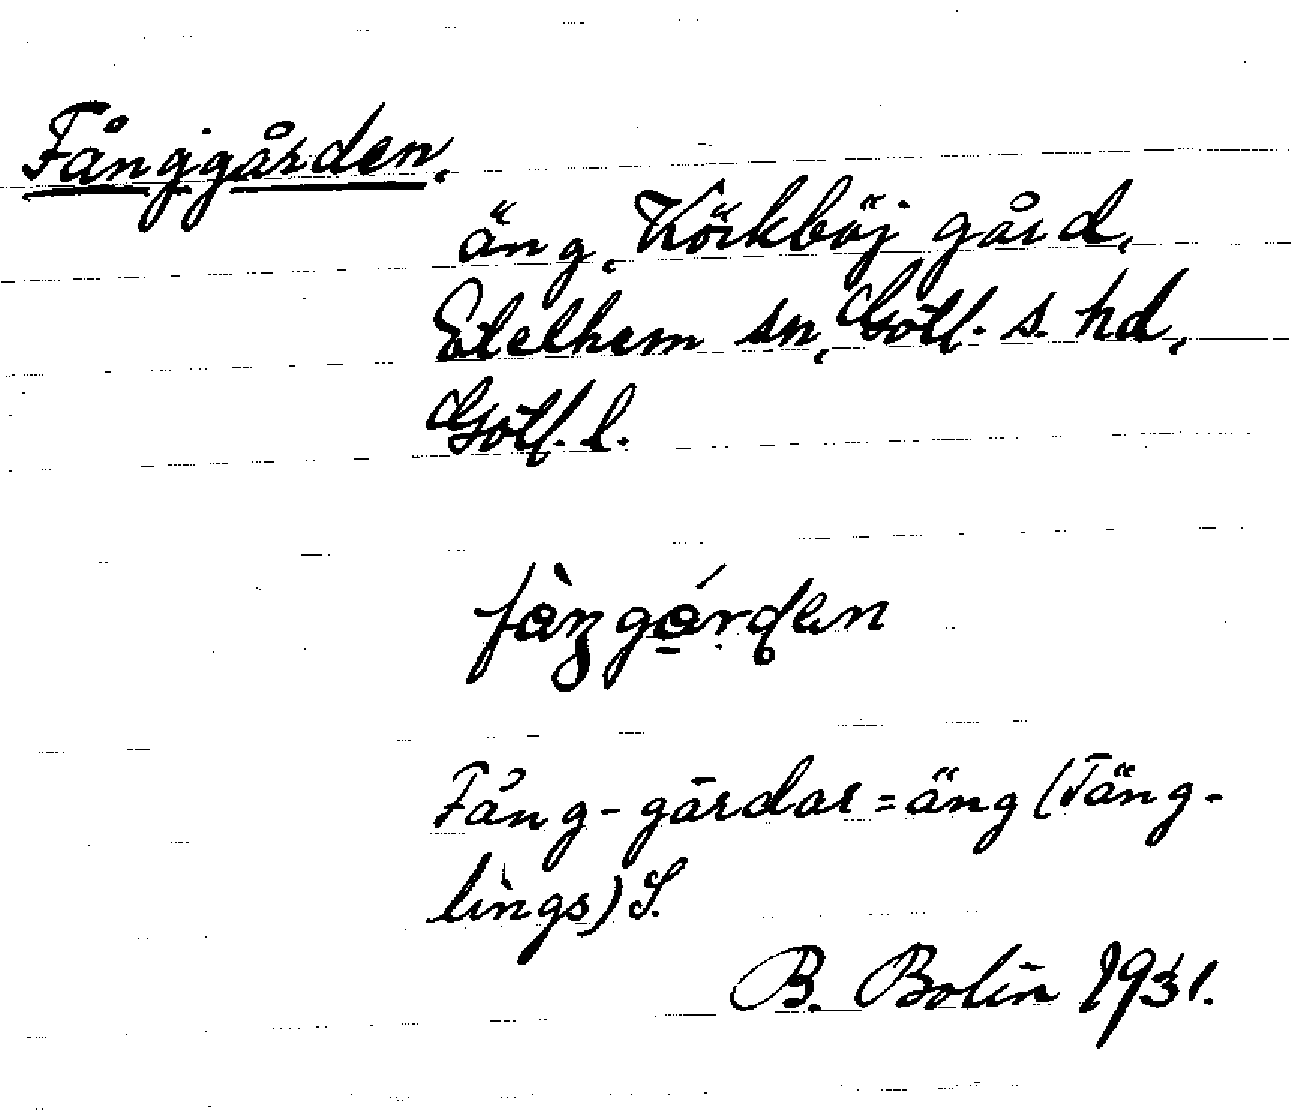 Fånggården.
äng, Körkböj gård,
Etelhem sn, Gotl. s. hd,
Gotl. l.
Fång-gårdar = äng (Täng-
lings) S.
B. Bolin 1931.